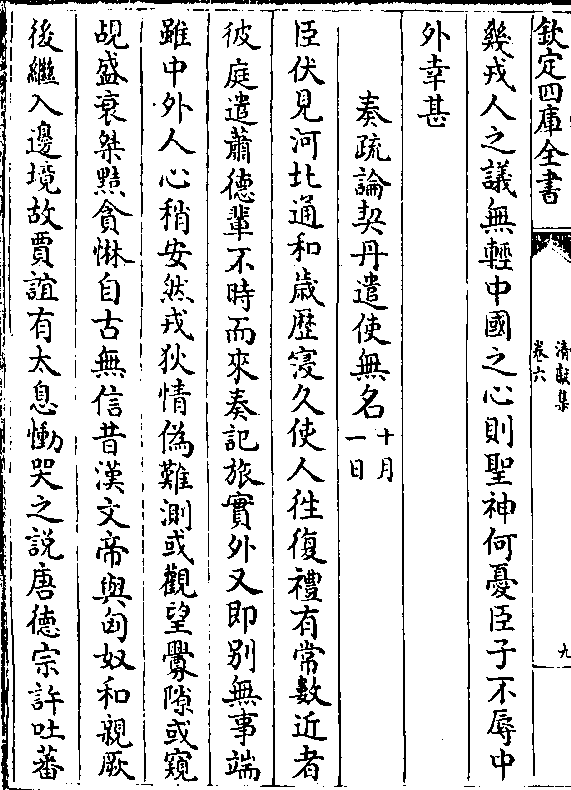 欽定四庫全書
清獻集
卷六
九
幾戎人之議無輕中國之心則聖神何憂臣子不辱中
外幸甚
奏疏論契丹遣使無名十月
一日
臣伏見河北通和歲歴寖久使人徃復禮有常數近者
彼庭遣蕭德輩不時而來奏記旅實外又即别無事端
雖中外人心稍安然戎狄情偽難測或觀望釁隙或窺
覘盛衰桀黠貪惏自古無信昔漢文帝與匈奴和親厥
後繼入邊境故賈誼有太息慟哭之説唐德宗許吐蕃